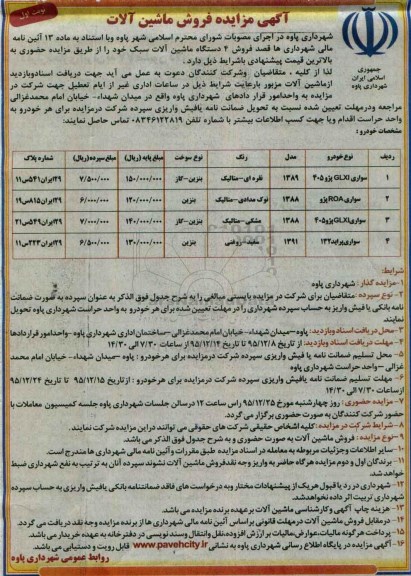 نوبت اول
آگهی مزایده فروش ماشین آلات
جمهوری اسلامی ایران
شهرداری پاوه
شهرداری پاوه در اجرای مصوبات شورای محترم اسلامی شهر پاوه وبا استناد به ماده ۱۳ آئین نامه
مالی شهرداری ها قصد فروش ۴ دستگاه ماشین آلات سبک خود را از طریق مزایده حضوری به
بالاترین قیمت پیشنهادی باشرایط ذیل دارد.
لذا از کلیه ، متقاضیان وشرکت کنندگان دعوت به عمل می آید جهت دریافت اسنادوبازدید
ازماشین آلات مزبور بارعایت شرایط ذیل در ساعات اداری غیر از ایام تعطیل جهت شرکت در
مزایده به واحدامور قرار دادهای شهرداری پاوه واقع در میدان شهداء- خیابان امام محمدغزالی
مراجعه ودرمهلت تعیین شده نسبت به تحویل ضمانت نامه یافیش واریزی سپرده شرکت درمزایده برای هر خودرو به
واحد حراست اقدام ویا جهت کسب اطلاعات بیشتر با شماره تلفن ۰۸۳۴۶۱۲۲۸۱۹ تماس حاصل نمایند:
مشخصات خودرو :
ردیف نوع خودرو مدل رنگ نوع سوخت مبلغ پایه (ریال) مبلغ سپرده(ریال) شماره پلاک
۱ سواری GLXI پژو ۴۰۵ ۱۳۸۹ نقره ای-متالیک بنزین-گاز ۱۵۰/۰۰۰/۰۰۰ ۷/۵۰۰/۰۰۰
۲ سواری ROA پژو ۱۳۸۸ نوک مدادی-متالیک بنزین ۱۲۰/۰۰۰/۰۰۰ ۶/۰۰۰/۰۰۰
۳ سواری GLXI پژو ۴۰۵ ۱۳۸۸ مشکی-متالیک بنزین-گاز ۱۴۰/۰۰۰/۰۰۰ ۷/۰۰۰/۰۰۰
۴ سواری پراید ۱۳۲ ۱۳۹۱ سفید-روغنی بنزین ۱۳۰/۰۰۰/۰۰۰ ۶/۵۰۰/۰۰۰
شرایط:
۱-مزایده گذار : شهرداری پاوه
۲- نوع سپرده :متقاضیان برای شرکت در مزایده بایستی مبالغی را به شرح جدول فوق الذکر به عنوان سپرده به صورت ضمانت
نامه بانکی یا فیش واریز به حساب سپرده شهرداری را در مهلت تعیین شده برای هر خودرو به واحد حراست شهرداری پاوه تحویل
نمایند.
۳-محل دریافت اسناد وبازدید: پاوه –میدان شهداء- خیابان امام محمدغزالی –ساختمان اداری شهرداری پاوه –واحدامور قراردادها
۴- مهلت دریافت اسناد وبازدید: از تاریخ ۹۵/۱۲/۸ تا تاریخ ۹۵/۱۲/۱۴ از ساعات ۷/۳۰ الی ۱۴/۳۰
۵- محل تسلیم ضمانت نامه یا فیش واریزی سپرده شرکت درمزایده برای هرخودرو : پاوه -میدان شهداء- خیابان امام محمد
غزالی –واحد حراست شهرداری پاوه
۶- مهلت تسلیم ضمانت نامه یافیش واریزی سپرده شرکت درمزایده برای هرخودرو : ازتاریخ ۹۵/۱۲/۱۵ تا تاریخ ۹۵/۱۲/۲۴
ازساعات ۷/۳۰ الی ۱۴/۳۰
۷- مزایده حضوری : روز چهارشنبه مورخ ۹۵/۱۲/۲۵ راس ساعت ۱۲ درسالن جلسات شهرداری پاوه جلسه کمیسیون معاملات با
حضور شرکت کنندگان به صورت حضوری برگزار می گردد.
۸- شرایط شرکت در مزایده: کلیه اشخاص حقیقی شرکت های حقوقی می توانند دراین مزایده شرکت نمایند.
۹-نوع مزایده : فروش ماشین آلات به صورت حضوری و به شرح جدول فوق الذکر می باشد.
۱۰-سایر اطلاعات وجزئیات مربوطه به معامله در اسناد مزایده طبق مقررات و آئین نامه مالی شهرداری ها مندرج است.
۱۱-برندگان اول و دوم مزایده هرگاه حاضر به واریز وجه نقدفروش ماشین آلات نشوند سپرده آنان به ترتیب به نفع شهرداری ضبط
خواهد شد.
۱۲- شهرداری در رد یا قبول هریک از پیشنهادات مختار وبه درخواست های فاقد ضمانتنامه بانکی یافیش واریزی به حساب سپرده
شهرداری تربیت اثر داده نخواهدشد.
۱۳- هزینه چاپ آگهی وکارشناسی ماشین آلات برعهده برنده مزایده می باشد.
۱۴-درمقابل فروش ماشین آلات درمهلت قانونی براساس آئین نامه مالی شهرداری ها از برنده مزایده وجه نقد دریافت می گردد.
۱۵-پرداخت هرگونه مالیات،عوارض،مالیات بر ارزش افزوده،نقل وانتقال وسند نویسی در دفترخانه به عهده خریدار می باشد.
۱۶- آگهی مزایده در پایگاه اطلاع رسانی شهرداری پاوه به نشانی www.pavehcity.ir قابل رویت و دستیابی می باشد.
روابط عمومی شهرداری پاوه